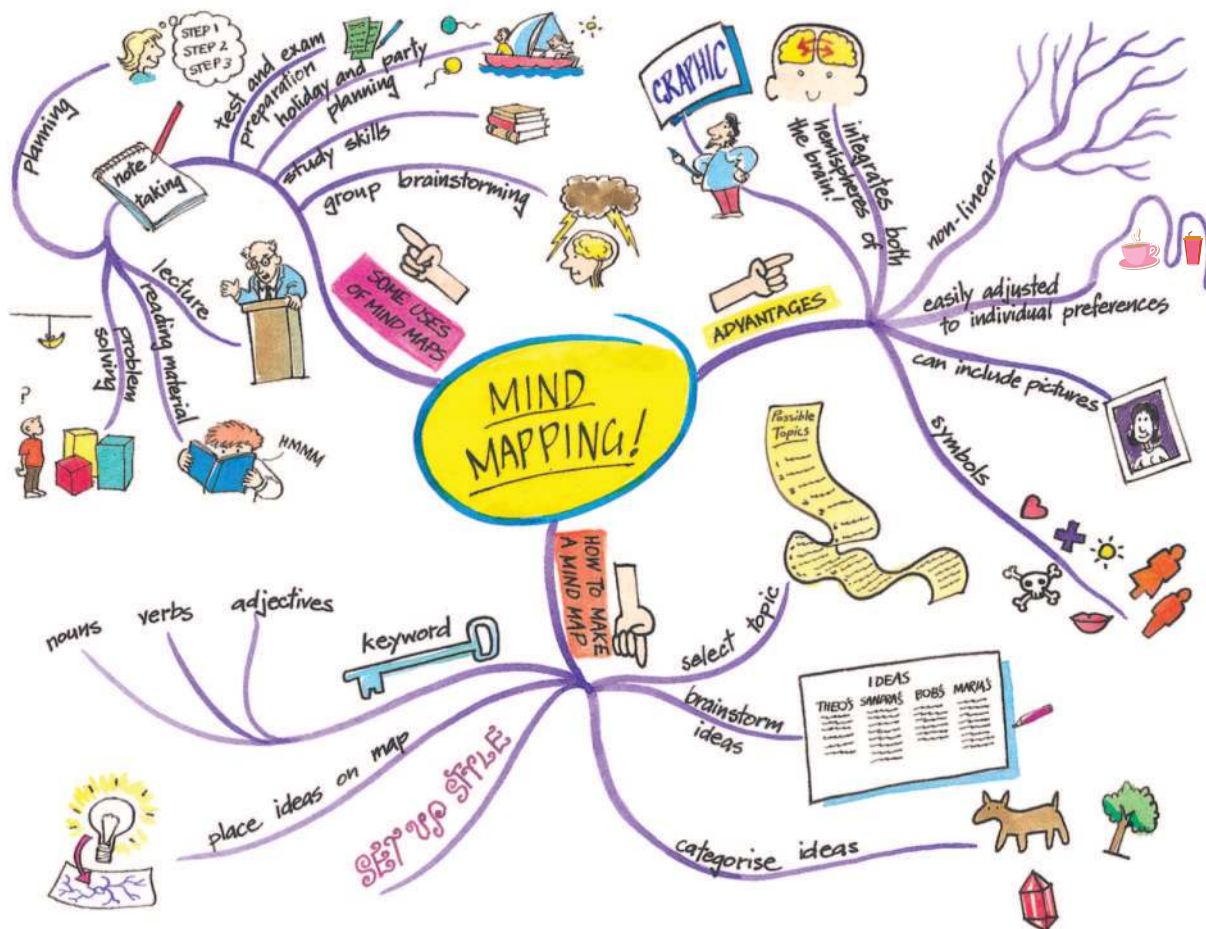 MIND
MAPPING!
SOME USES
OF MIND MAPS
planning
STEP 1
STEP 2
STEP 3
note
taking
test and exam
preparation
holiday and party
planning
study skills
group brainstorming
lecture
reading material
problem
solving
?
HMMM
ADVANTAGES
GRAPHIC
integrates both
hemispheres of
the brain!
non-linear
easily adjusted
to individual preferences
can include pictures
symbols
HOW TO MAKE
A MIND MAP
Possible
Topics
select topic
brainstorm
ideas
IDEAS
THEO'S SANDRA'S BOB'S MARIA'S
categorise ideas
SET UP STYLE
place ideas on map
keyword
nouns
verbs
adjectives